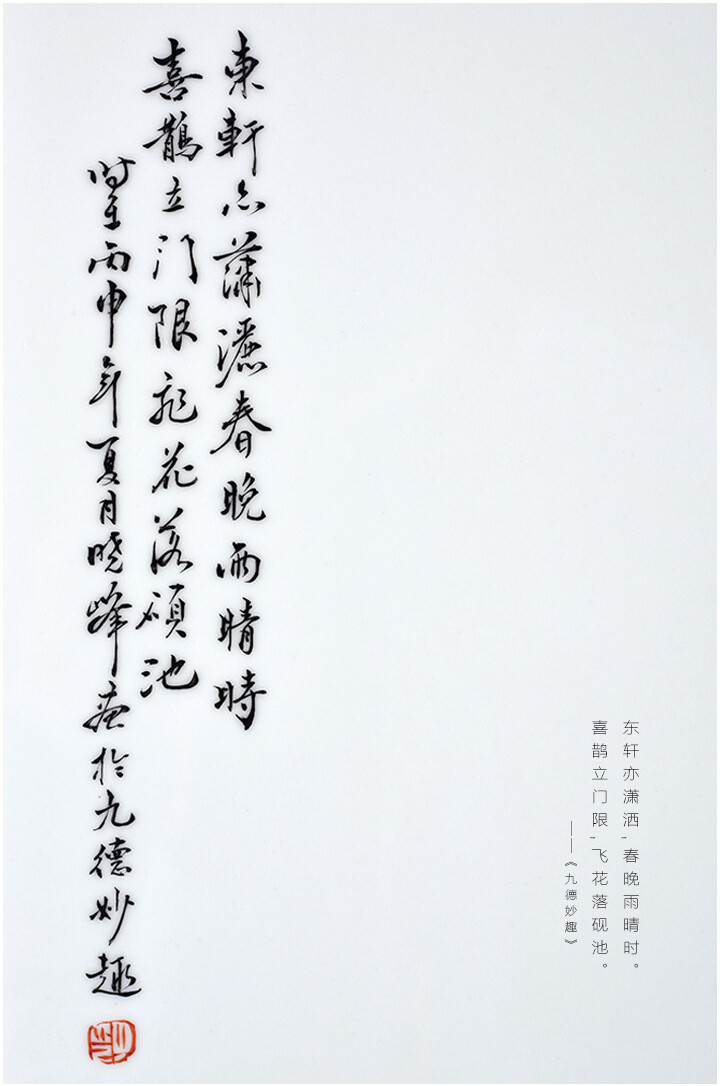 東軒亦蕭灑春晚雨晴時
喜鵲立门限飛花落硯池
时在丙申年夏月晓峰画於九德妙趣
东轩亦潇洒，春晚雨晴时。
喜鹊立门限，飞花落砚池。
——《九德妙趣》